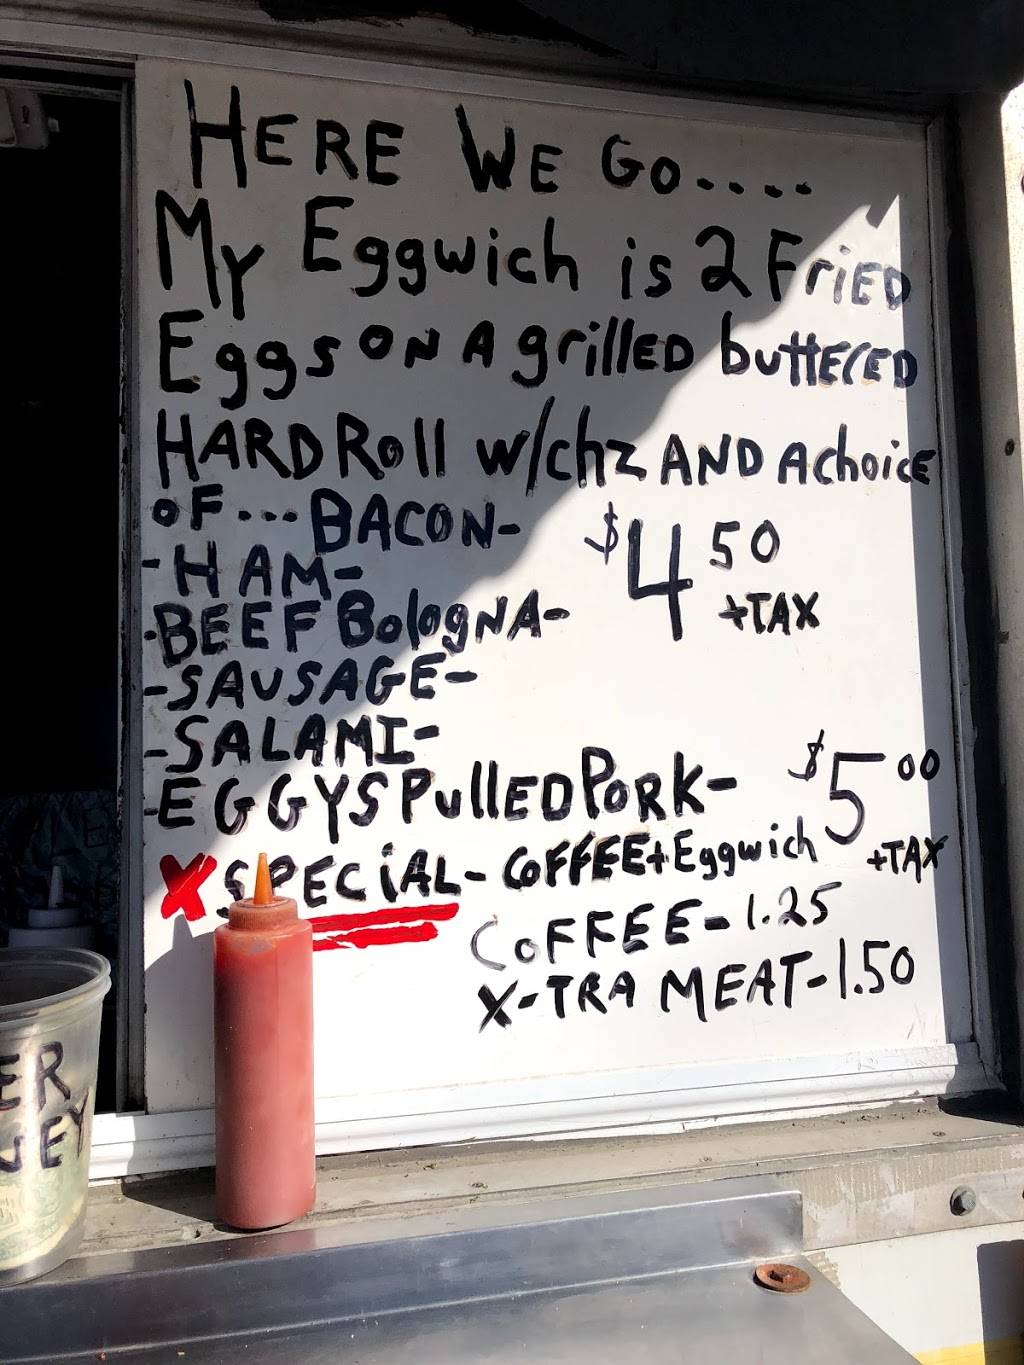 HERE WE GO....
My Eggwich is 2 FriED
Eggs ON A grillED buttERED
HARD Roll w/chz AND A choice
OF... BACON-
-HAM-
-BEEF BologNA-
$4 50
+TAX
-SAUSAGE-
-SALAMI-
-EGGYS PullED PORK-
$5 00
+TAX
X SPECiAL- COFFEE+Eggwich
COFFEE-1.25
X-TRA MEAT-1.50
ER